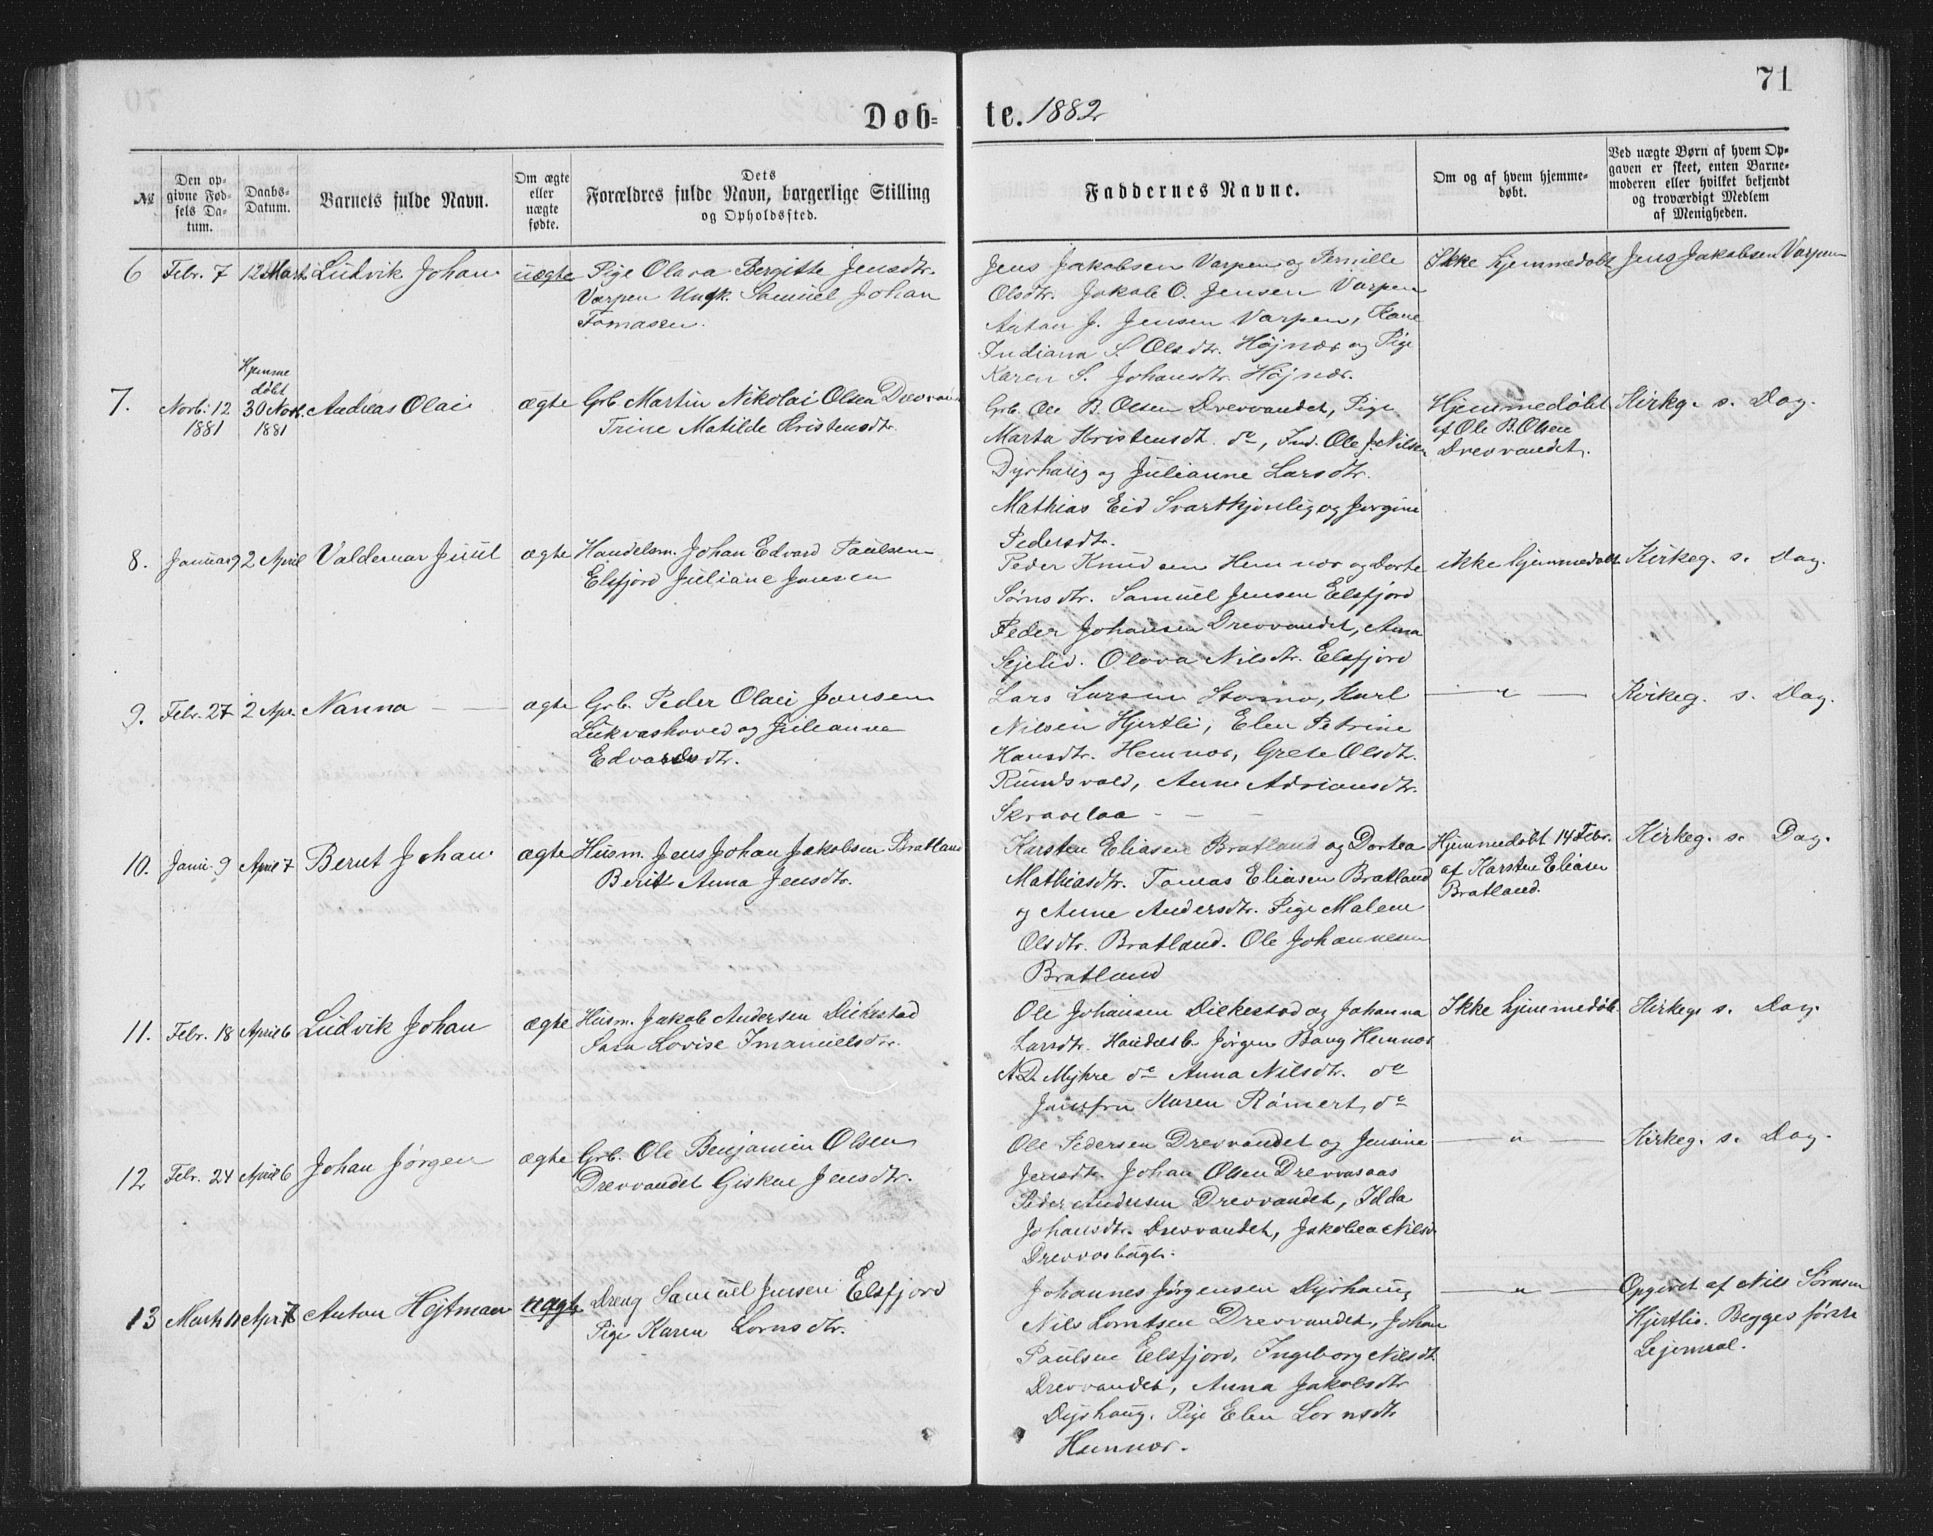 71
Døb=
te. 1882
№
Den opgivne Fødsels Datum.
Daabs-Datum.
Barnets fulde Navn.
Om ægte eller uægte fødte.
Dets Forældres fulde Navn, borgerlige Stilling og Opholdssted.
Faddernes Navne.
Om og af hvem hjemmedøbt.
Ved uægte Børn af hvem Opgaven er skeet, enten Barnemoderen eller hvilket bekjendt og troværdigt Medlem af Menigheden.
6 Febr. 7 12 Marts Ludvik Johan uægte Pige Olava Bergitte Jensdtr.
Varpen Ungk. Samuel Johan
Tomassen.
Jens Jakobsen Varpen og Pernille
Olsdtr. Jakob O. Jensen Varpen
Anton J. Jensen Varpen, Kone
Indiana S. Olsdtr. Højnæs og Pige
Karen S. Johansdtr. Højnæs.
Ikke hjemmedøbt
Jens Jakobsen Varpen
7. Novb: 12 1881
Hjemme
døbt
30 Novb.
1881
Andreas Olai ægte Grb. Martin Nikolai Olsen Drevvandet
Trine Matilde Kristensdtr.
Grb. Ole B. Olsen Drevvandet, Pige
Marta Kristensdt. do, Ind. Ole J. Nilsen
Dyrhaug og Julianne Larsdtr.
Mathias Eid Svartkjønlig og Jørgine
Pedersdtr.
Hjemmedøbt
af Ole B. Olsen
Drevvandet.
Kirkeg. s. Dag.
8. Januar 9 2 April Valdemar Juul ægte Handelsm. Johan Edvard Paulsen
Elsfjord Juliane Jansen
Peder Knudsen Hemnæs og Dorte
Sørnsdtr. Samuel Jensen Elsfjord
Peder Johansen Drevvandet, Anna
Sejelid. Olava Nilsdtr. Elsfjord
ikke hjemmedøbt
Kirkeg. s. Dag.
9. Febr. 27 2 Apr. Nanna — — ægte Grb. Peder Olai Jansen
Lukvashoved og Julianna
Edvardsdtr.
Lars Larsen Stormo, Karl
Nilsen Hjertli, Elen Petrine
Hansdtr. Hemnæs, Grete Olsdt.
Rundsvold, Anne Adriansdtr.
Skravlaa - - -
— " —
Kirkeg. s. Dag.
10. Janu. 9 April 7 Bernt Johan ægte Husm. Jens Johan Jakobsen Bratland
Berit Anna Jensdtr.
Karsten Eliasen Bratland og Dortea
Mathiasdtr. Tomas Eliasen Bratland
og Anne Andersdtr. Pige Malene
Olsdtr. Bratland. Ole Johannesen
Bratland
Hjemmedøbt 14 Febr.
af Karsten Eliasen
Bratland.
Kirkeg. s. Dag.
11. Febr. 18 April 6 Ludvik Johan ægte Husm. Jakob Andersen Dilkestad
Sara Lovise Imanuelsdtr.
Ole Johansen Dilkestad og Johanna
Larsdtr. Handelsb. Jørgen Bang Hemnæs
A. D. Myhre do Anna Nilsdtr. do
Jomfru Karen Rømert, do
Ikke hjemmedøb.
Kirkeg. s. Dag.
12 Febr. 24 April 6 Johan Jørgen ægte Grb. Ole Benjamin Olsen
Drevvandet Gisken Jensdtr.
Ole Pedersen Drevvandet og Jensine
Jensdtr. Johan Olsen Drevvasaas
Peder Andersen Drevvandet, Idda
Johansdtr. Drevvandet, Jakobea Nilsd.
Drevvasbugt.
— " —
Kirkeg. s. Dag.
13 Marts 11 April 7 Anton Hejtman uægte Dreng Samuel Jensen Elsfjord
Pige Karen Lornsdtr.
Johannes Jørgensen Dyrhaug
Nils Lorntsen Drevvandet, Johan
Paulsen Elsfjord, Ingeborg Nilsdt.
Drevvandet, Anna Jakobsdtr.
Dyrhaug. Pige Elen Lornsdt.
Hemnæs.
— " —
Opgivet af Nils Sørnsen
Hjertlie. Begges første
Lejemaal.